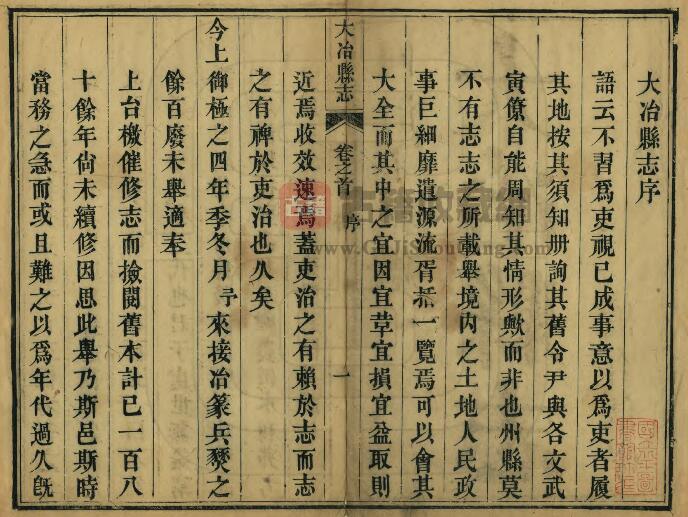 大冶縣志序
語云不習爲吏視已成事意以爲吏者履
其地按其須知册詢其舊令尹與各文武
寅僚自能周知其情形歟而非也州縣莫
不有志志之所載舉境内之土地人民政
事巨細靡遺源流胥括一覽焉可以會其
大全而其中之宜因宜革宜損宜益取則
大冶縣志
卷之首
序
一
近焉收效速焉蓋吏治之有賴於志而志
之有裨於吏治也久矣
今上御極之四年季冬月予來接冶篆兵燹之
餘百廢未舉適奉
上台檄催修志而撿閱舊本計已一百八
十餘年尙未續修因思此舉乃斯邑斯時
當務之急而或且難之以爲年代過久旣
古籍收藏网
GuJiShouCang.com